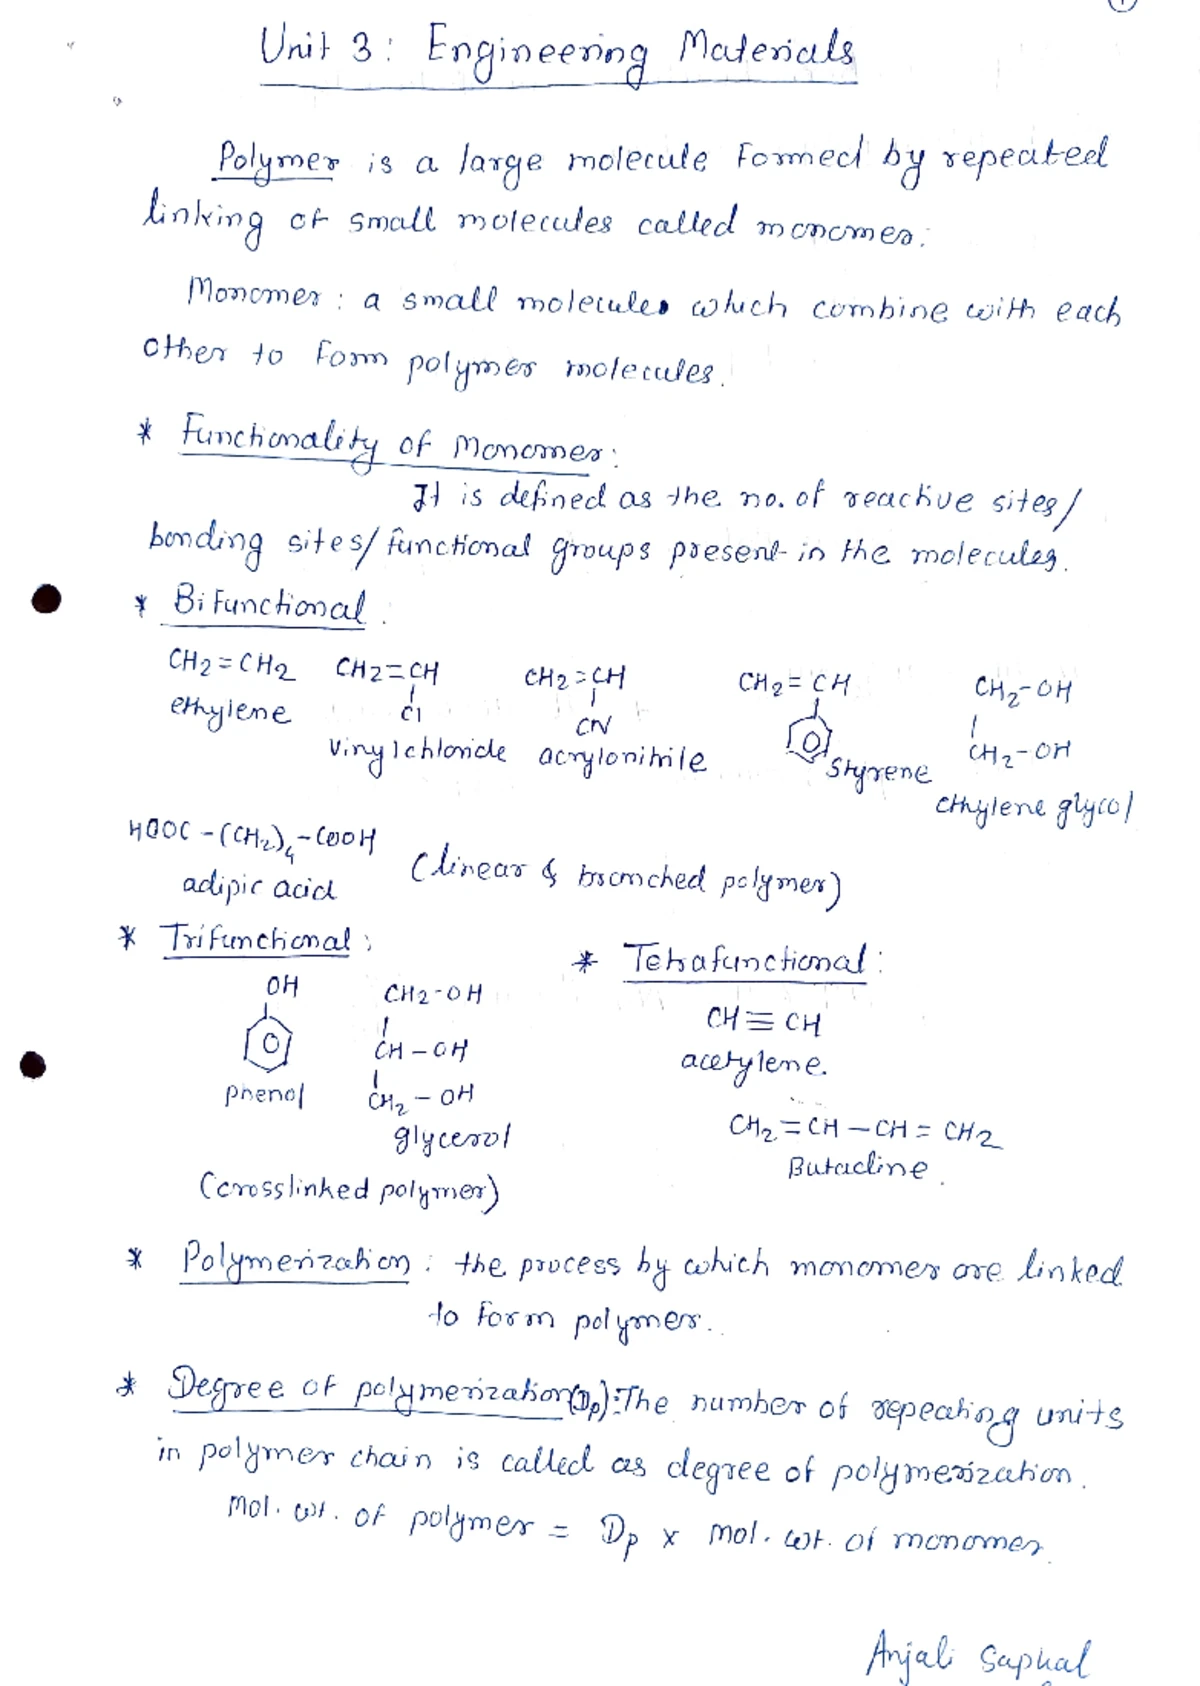 Unit 3: Engineering Materials
Polymer is a large molecule formed by repeated
linking of small molecules called monomer.
Monomer: a small molecules which combine with each
other to form polymer molecules.
* Functionality of Monomer:
It is defined as the no. of reactive sites/
bonding sites/functional groups present in the molecules.
* Bifunctional:
CH2=CH2 CH2=CH CH2=CH CH2=CH CH2-OH
ethylene Cl CN Styrene CH2-OH
vinylchloride acrylonitrile ethylene glycol
HOOC-(CH2)4-COOH (linear & branched polymer)
adipic acid
* Trifunctional: * Tetrafunctional:
OH CH2-OH CH≡CH
CH-OH acetylene.
phenol CH2-OH CH2=CH-CH=CH2
glycerol Butadine.
(crosslinked polymer)
* Polymerization: the process by which monomer are linked
to form polymer.
* Degree of polymerization(Dp): The number of repeating units
in polymer chain is called as degree of polymerization.
Mol. wt. of polymer = Dp x mol. wt. of monomer.
Anjali Saphal